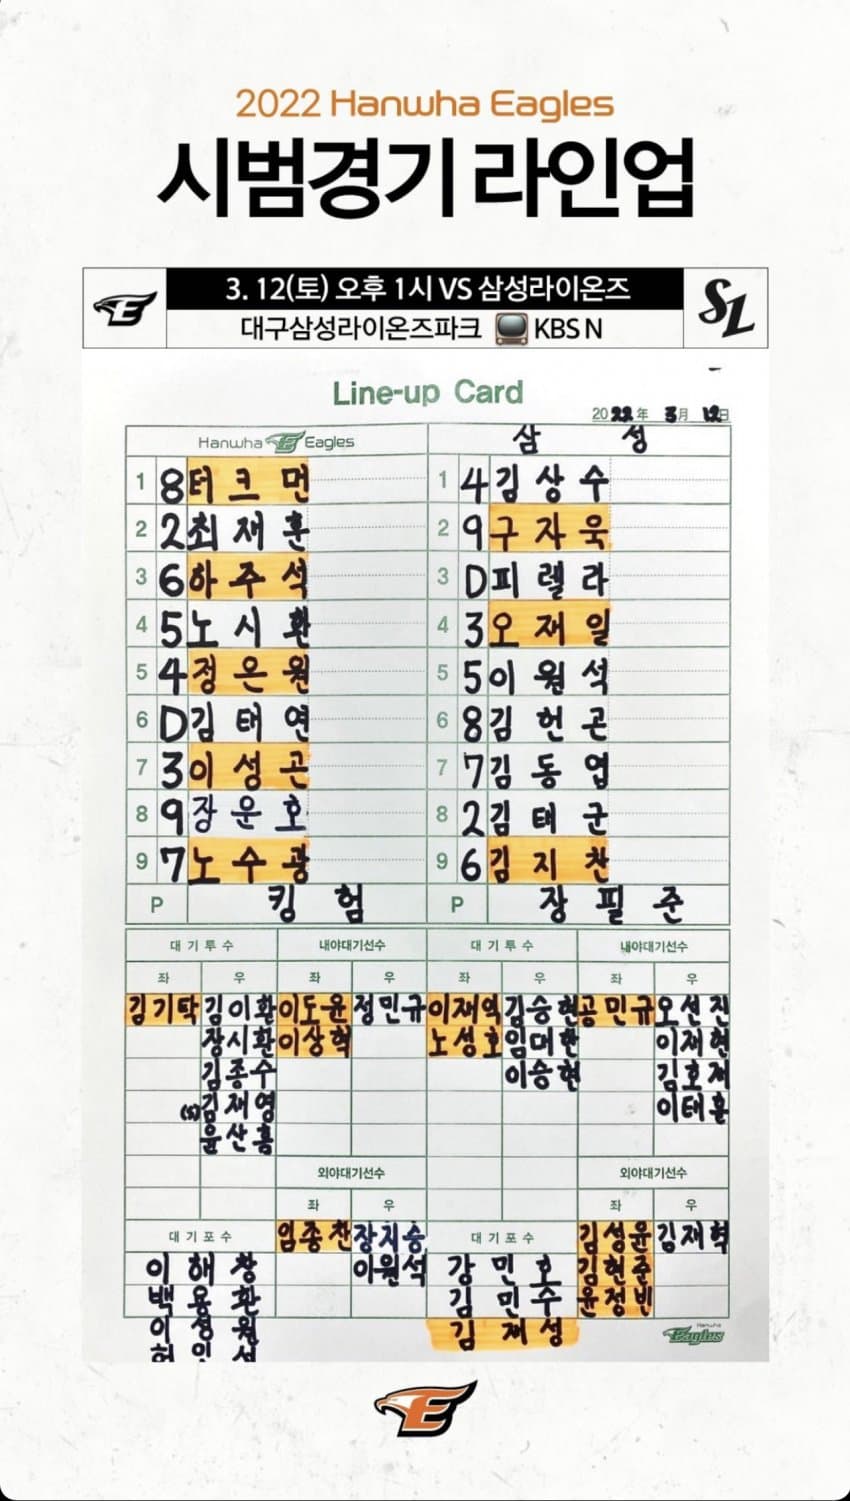 2022 Hanwha Eagles
시범경기 라인업
3. 12(토) 오후 1시 VS 삼성라이온즈
대구삼성라이온즈파크 KBS N
Line-up Card
2022年 3月 12日
Hanwha Eagles 삼 성
1 8 터크먼 1 4 김상수
2 2 최재훈 2 9 구자욱
3 6 하주석 3 D 피렐라
4 5 노시환 4 3 오재일
5 4 정은원 5 5 이원석
6 D 김태연 6 8 김헌곤
7 3 이성곤 7 7 김동엽
8 9 장운호 8 2 김태군
9 7 노수광 9 6 김지찬
P 킹험 P 장필준
대기투수 내야대기선수 대기투수 내야대기선수
좌 우 좌 우 좌 우 좌 우
김기탁 김이환 이도윤 정민규 이재익 김승현 공민규 오선진
장시환 이상혁 노성호 임대한 이재현
김종수 이승현 김호재
(s)김재영 이태훈
윤산흠
외야대기선수 외야대기선수
좌 우 좌 우
대기포수 임종찬 장지승 대기포수 김성윤 김재혁
이해창 이원석 강민호 김현준
백용환 김민수 윤정빈
이성원 김재성
허인서
Hanwha Eagles